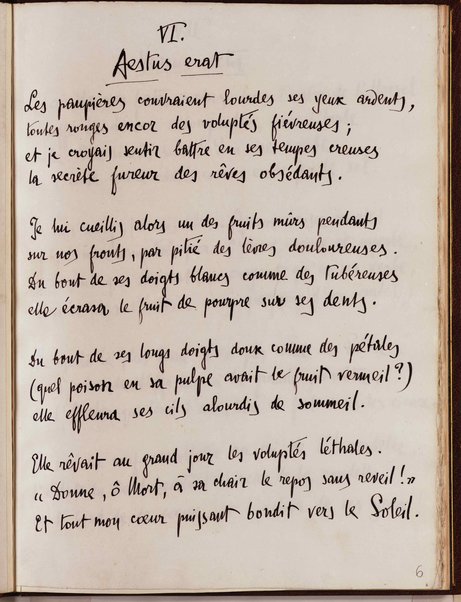 VI.
Aestus erat
Les paupières couvraient lourdes ses yeux ardents,
toutes rouges encor des voluptés fiévreuses ;
et je croyais sentir battre en ses tempes creuses
la secrète fureur des rêves obsédants.
Je lui cueillis alors un des fruits mûrs pendants
sur nos fronts, par pitié des lèvres douloureuses.
Du bout de ses doigts blancs comme des tubéreuses
elle écrasa le fruit de pourpre sur ses dents.
Du bout de ses longs doigts doux comme des pétales
(quel poison en sa pulpe avait le fruit vermeil ?)
elle effleura ses cils alourdis de sommeil.
Elle rêvait au grand jour les voluptés léthales.
« Donne, ô Mort, à sa chair le repos sans reveil ! »
Et tout mon cœur puissant bondit vers le Soleil.
6